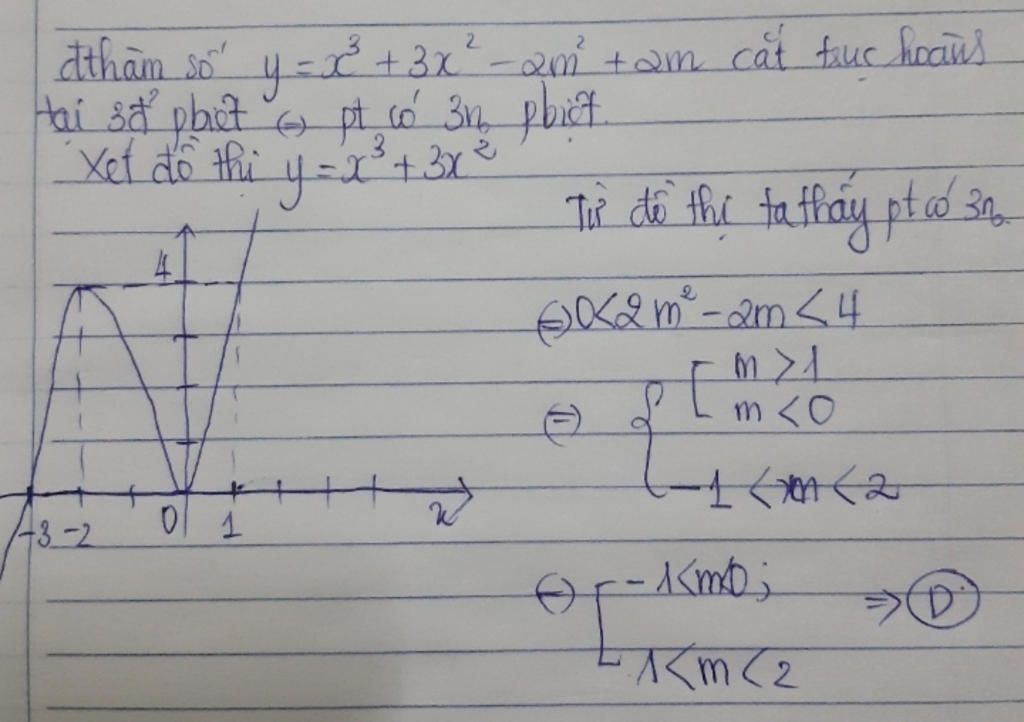 đthàm số y = x³ + 3x² - 2m² + 2m cắt trục hoành
tại 3đ' pbiệt ⇔ pt có 3n₀ pbiệt.
Xét đồ thị y = x³ + 3x²
Từ đồ thị ta thấy pt có 3n₀
4
-3 -2 0 1 x
⇔ 0 < 2m² - 2m < 4
⇔ { [ m > 1
m < 0
-1 < m < 2
⇔ [ -1 < m < 0;
1 < m < 2
⇒ D